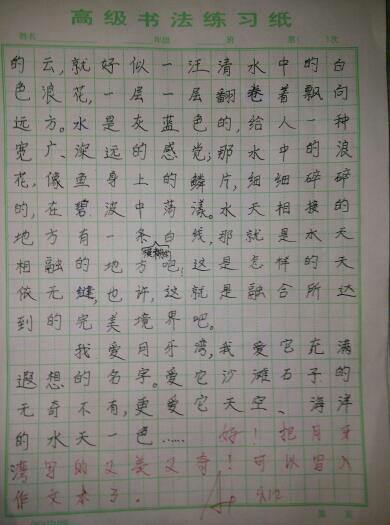 高级书法练习纸
姓名 年级 班 第( )次
的云,就好似一汪清水中的白
色浪花,一层一层翻卷着飘向
远方。水是灰蓝色的,给人一种
宽广、深远的感觉;那水中的浪
花,像鱼身上的鳞片,细细碎碎
的,在碧波中荡漾。水天相接的
地方有一条白线,那就是水天
相融的地方吧!这是怎样的天
依无缝,也许,这就是融合所达
到的完美境界吧。
我爱月牙湾,我爱它充满
遐想的名字。爱它沙滩石子的
无奇不有,更爱它天空、海洋
的水天一色……好!把月牙
湾写的又美又奇!可以写入
作文本了。 A+ 9.12
第 页